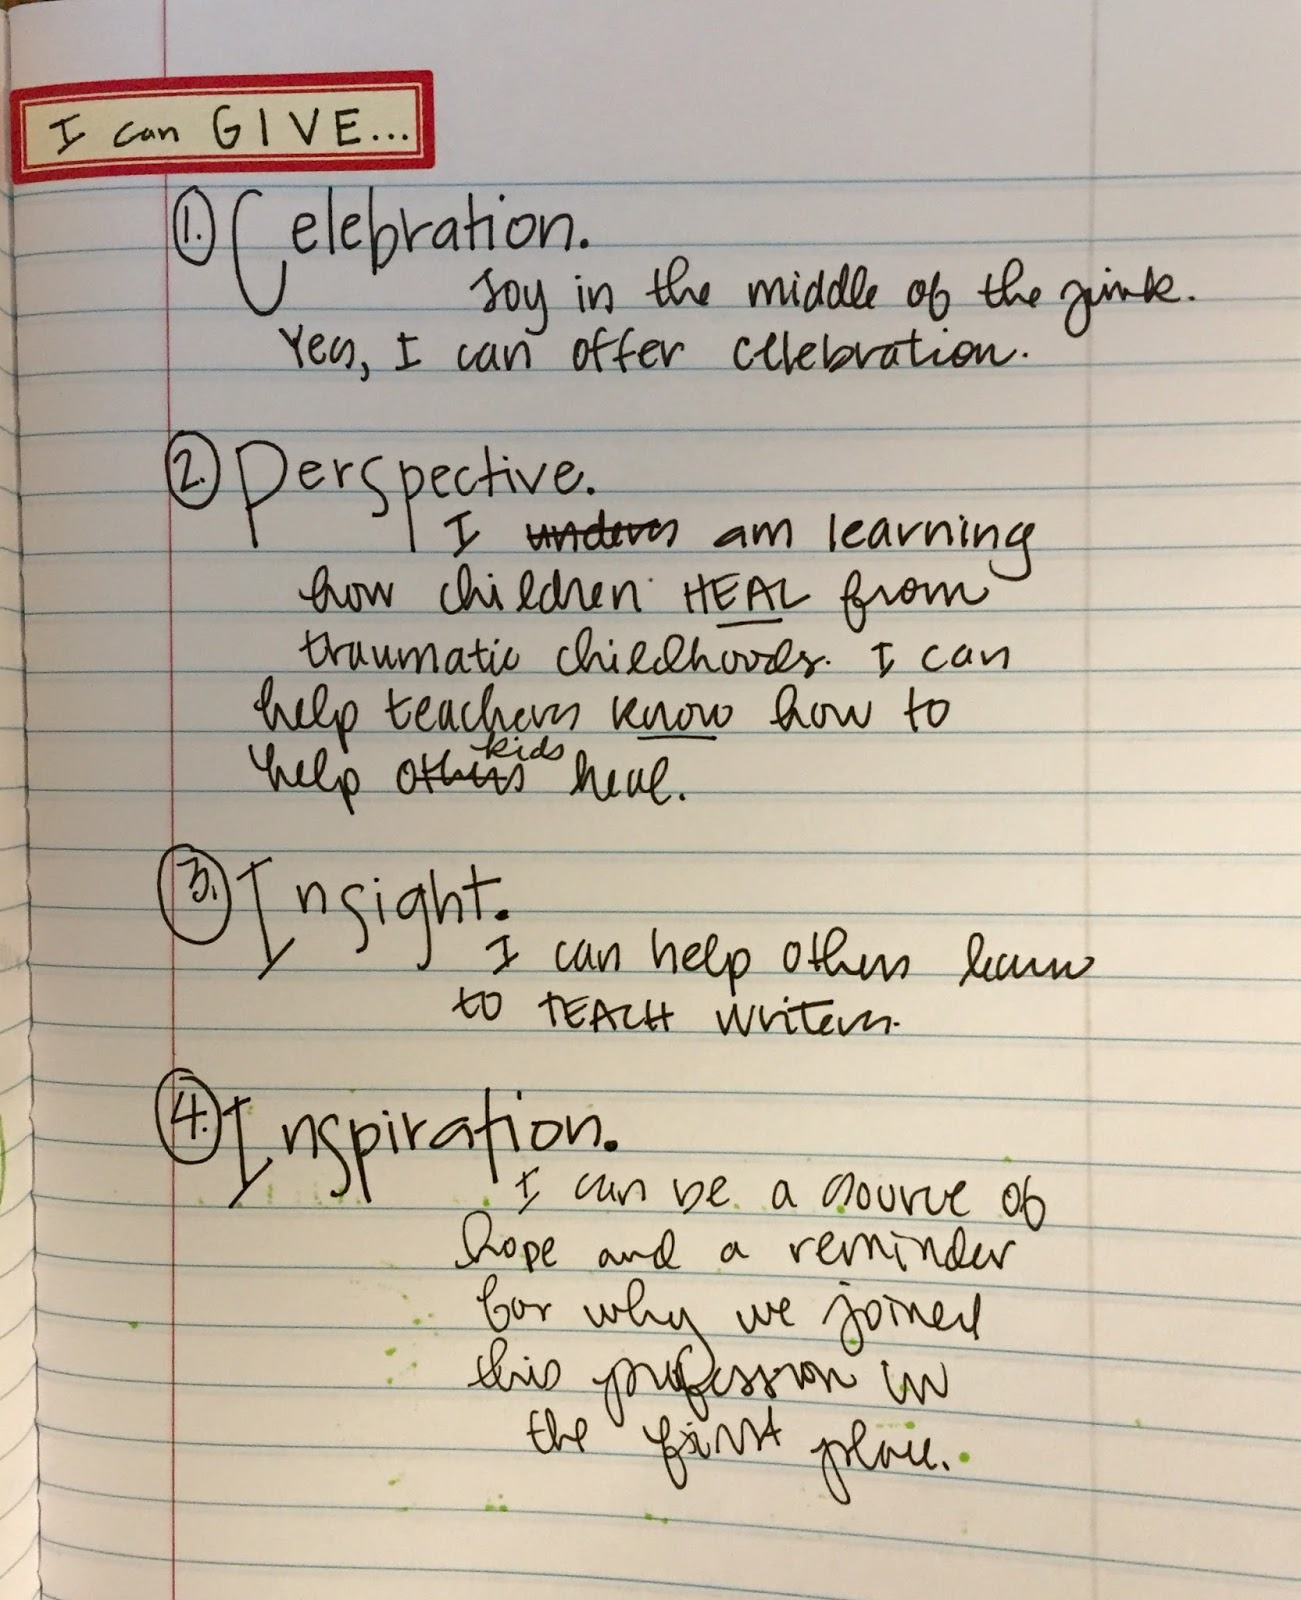 I can GIVE...
1. Celebration.
Joy in the middle of the junk.
Yes, I can offer celebration.
2. Perspective.
I unders am learning
how children HEAL from
traumatic childhoods. I can
help teachers know how to
kids
help others heal.
3. Insight.
I can help others learn
to TEACH writers.
4. Inspiration.
I can be a source of
hope and a reminder
for why we joined
this profession in
the first place.